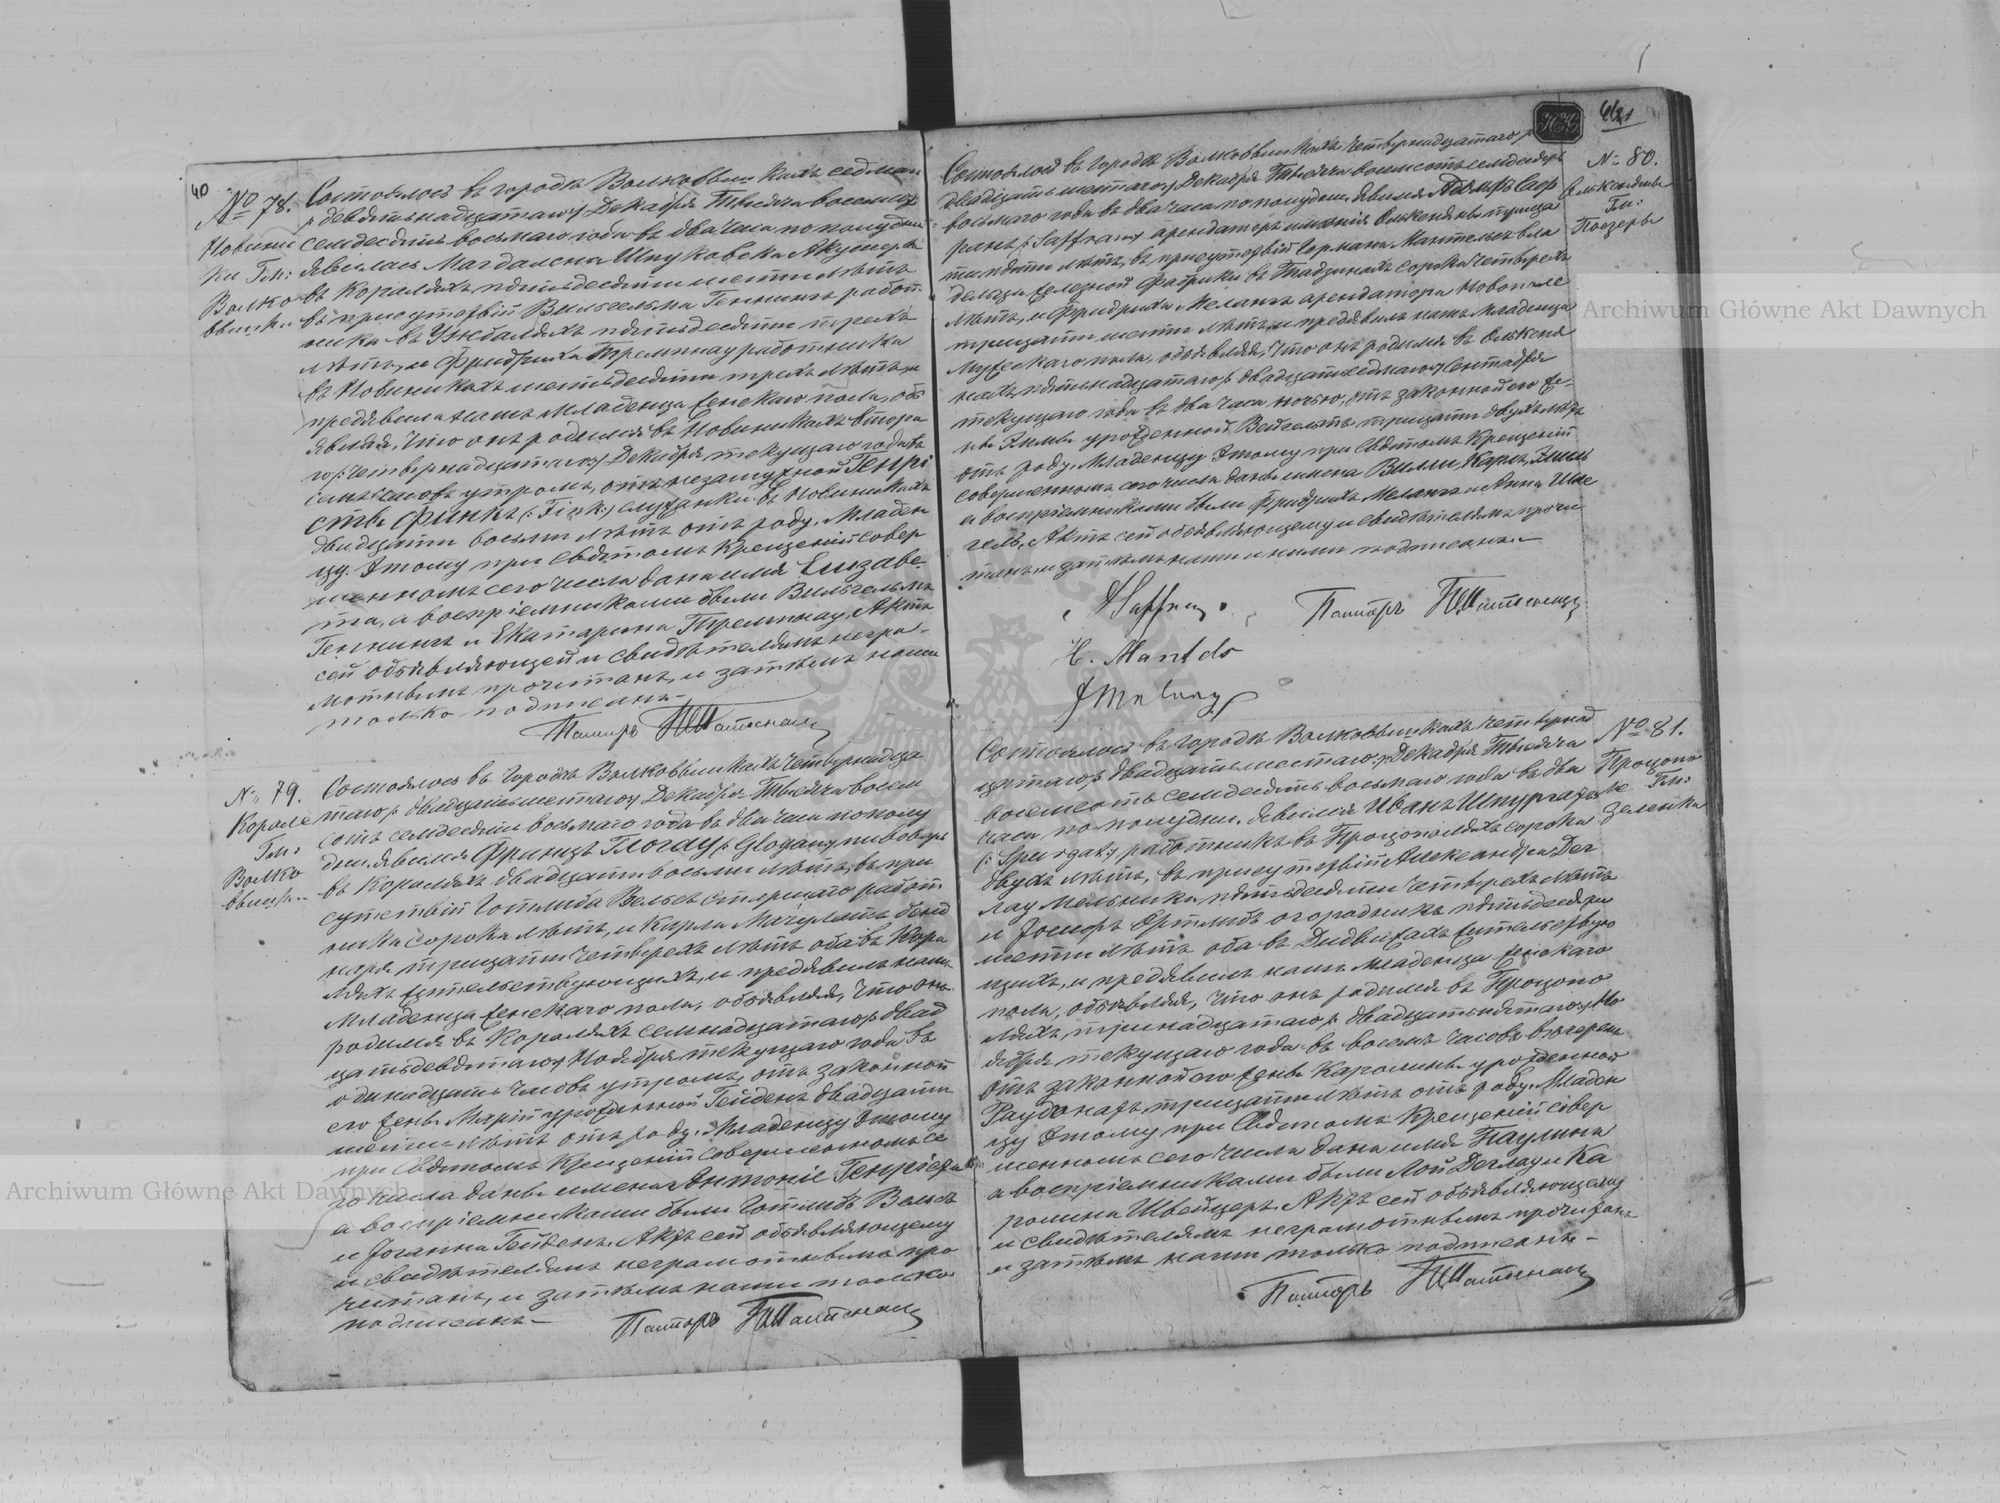 40
№ 78.
Новини
ки Гм:
Волко
вышки
Состоялось въ городѣ Волковышкахъ седьмаго
/: девятнадцатаго :/ Декабря Тысяча восемсотъ
семдесятъ восьмаго года въ два часа по полудни
явилась Магдалена Шпуковска Акушерка
въ Короляхъ пятьдесяти шести лѣтъ
въ присутствіи Вильгельма Геннингъ работ
ника въ Ужбаляхъ пятьдесяти трехъ
лѣтъ, и Фридриха Тремпнау работника
въ Новиникахъ шестьдесяти трехъ лѣтъ и
предъявила намъ младенца женскаго пола, объ
являя, что онъ родился въ Новиникахъ втора
го /: четырнадцатаго :/ Декабря текущаго года въ
семь часовъ утромъ, отъ незамужной Генрі
етты Финкъ (: Fink :) служанки въ Новиникахъ
двадцати восьми лѣтъ отъ роду. Младен
цу этому при Святомъ Крещеніи совер
шенномъ сего числа дано имя Елизаве
та, а воспріемниками были Вильгельмъ
Геннингъ и Екатарина Тремпнау. Актъ
сей объявляющей и свидѣтелямъ неграм
мотнымъ прочитанъ, и затѣмъ нами
только подписанъ.
Пасторъ
№ 79.
Короле
Гм:
Волко
вышки
Состоялось въ Городѣ Волковышкахъ четырнадца
таго /: двадцать шестаго :/ Декабря Тысяча восем
сотъ семдесятъ восьмаго года въ два часа по полу
дни. Явился Францъ Глогау (: Glogau :) пивоваръ
въ Короляхъ двадцати восьми лѣтъ, въ при
сутствіи Готлиба Вельсъ старшаго работ
ника сорока лѣтъ, и Карла Мачулатъ бонд
наря тридцати четырехъ лѣтъ оба въ Коро
ляхъ жительствующихъ, и предъявилъ намъ
младенца женскаго пола, объявляя, что онъ
родился въ Короляхъ семнадцатаго /: двад
цать девятаго :/ Ноября текущаго года въ
одинадцать часовъ утромъ, отъ законной
его жены Маріи урожденной Гейденъ двадцати
шести лѣтъ отъ роду. Младенцу этому
при Святомъ Крещеніи совершенномъ се
го числа даны имена Антоніе Генріета
а воспріемниками были Готлибъ Вельсъ
и Іоганна Гейденъ. Актъ сей объявляющему
и свидѣтелямъ неграмотнымъ про
читанъ, и затѣмъ нами только
подписанъ.
Пасторъ
№ 80.
Гм:
Поезеры
Состоялось въ Городѣ Волковышкахъ четырнадцатаго /:
двадцать шестаго :/ Декабря Тысяча восемсотъ семдесятъ
восьмаго года въ два часа по полудни. Явился Адольфъ Саф
ранъ (: Saffran :) арендаторъ имѣнія
ти пяти лѣтъ, въ присутствіи Германа Мантельсъ вла
дельца желѣзной Фабрики въ сорока четырехъ
лѣтъ, и Фридриха Мелангъ арендатора Новополе
тридцати шести лѣтъ и предъявилъ намъ младенца
мужескаго пола, объявляя, что онъ родился въ
нахъ пятнадцатаго /: двадцать седмаго :/ Сентября
текущаго года въ два часа ночью, отъ законной его же
ны Эммы урожденной тридцати двухъ лѣтъ
отъ роду. Младенцу этому при Святомъ Крещеніи
совершенномъ сего числа даны имена Вилли, Карлъ, Эмиль
а воспріемниками были Фридрихъ Мелангъ и Анна
Актъ сей объявляющему и свидѣтелямъ прочи
танъ и затѣмъ нами и ними подписанъ.
Saffran
Пасторъ
H. Mantels
№ 81.
Прощопо
ле Гм:
Зеленка
Состоялось въ Городѣ Волковышкахъ четырнад
цатаго /: двадцать шестаго :/ Декабря Тысяча
восемсотъ семдесятъ восьмаго года въ два
часа по полудни. Явился Иванъ Шпургатъ
(: Spurgat :) работникъ въ Прощополяхъ сорока
двухъ лѣтъ, въ присутствіи Александра Дег
лау мельника пятьдесяти четырехъ лѣтъ
и Іосифъ Ортлибъ огородникъ пятьдесяти
шести лѣтъ оба въ Дидвижахъ жительствую
щихъ, и предъявилъ намъ младенца женскаго
пола, объявляя, что онъ родился въ Прощопо
ляхъ, тринадцатаго /: двадцать пятаго :/ Но
ября текущаго года въ восемь часовъ вечеромъ
отъ законной его жены Каролины урожденной
Раудонатъ, тридцати лѣтъ отъ роду. Младен
цу этому при Святомъ Крещеніи совер
шенномъ сего числа дано имя Паулина
а воспріемниками были Деглау и Ка
ролина Швейцеръ. Актъ сей объявляющему
и свидѣтелямъ неграмотнымъ прочитанъ
и затѣмъ нами только подписанъ.
Пасторъ
Archiwum Główne Akt Dawnych
Archiwum Główne Akt Dawnych